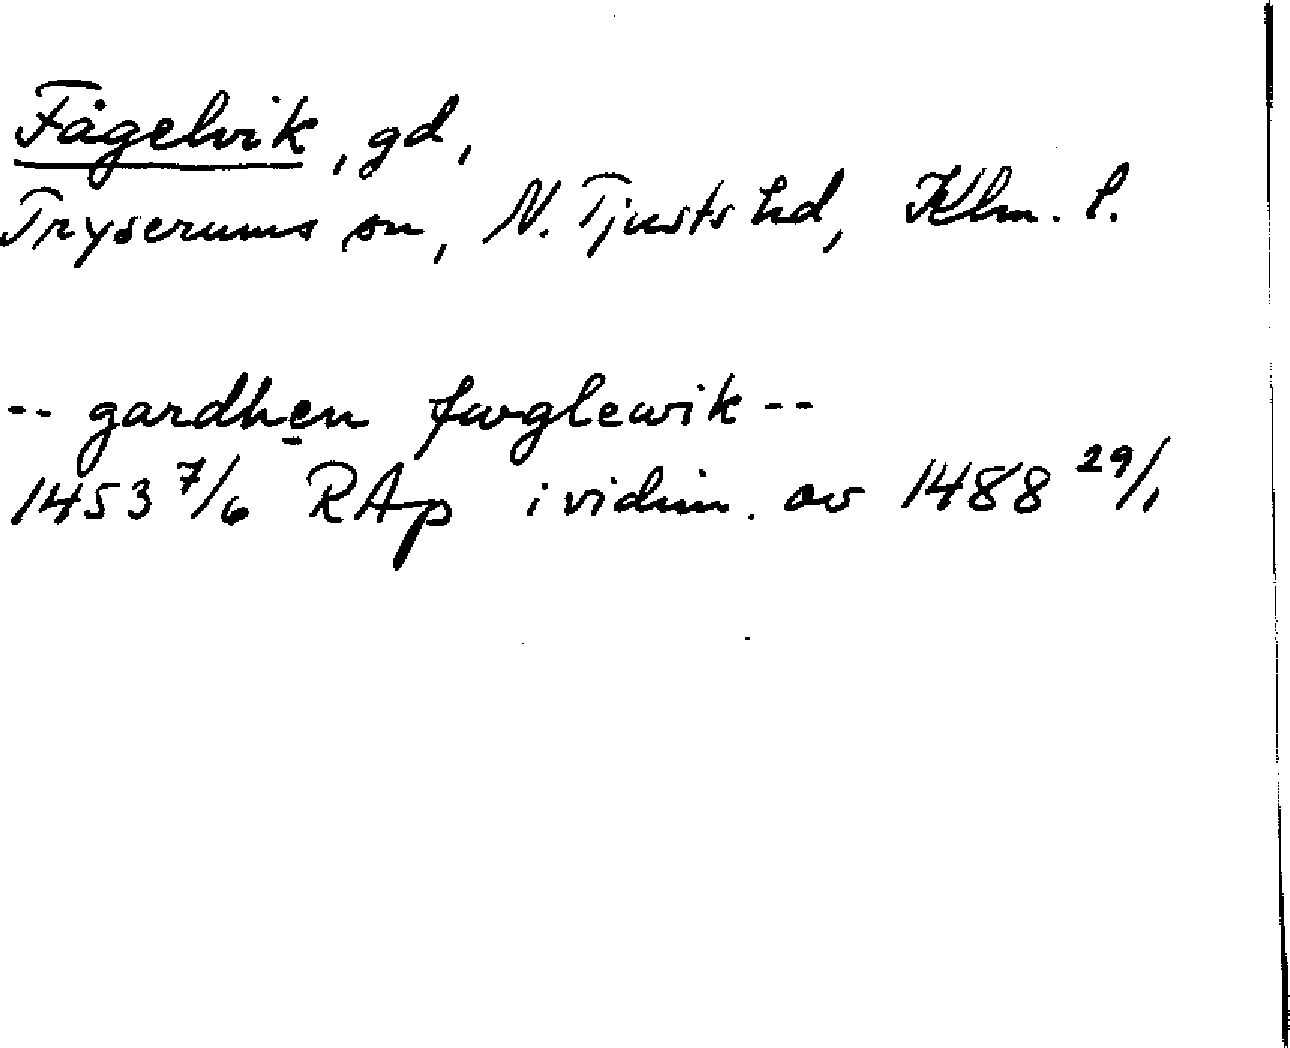 Fågelvik, gd,
Tryserums sn, N. Tjusts hd, Klm. l.
-- gardhen fwglewik --
1453 7/6 RAp i vidim. av 1488 29/1